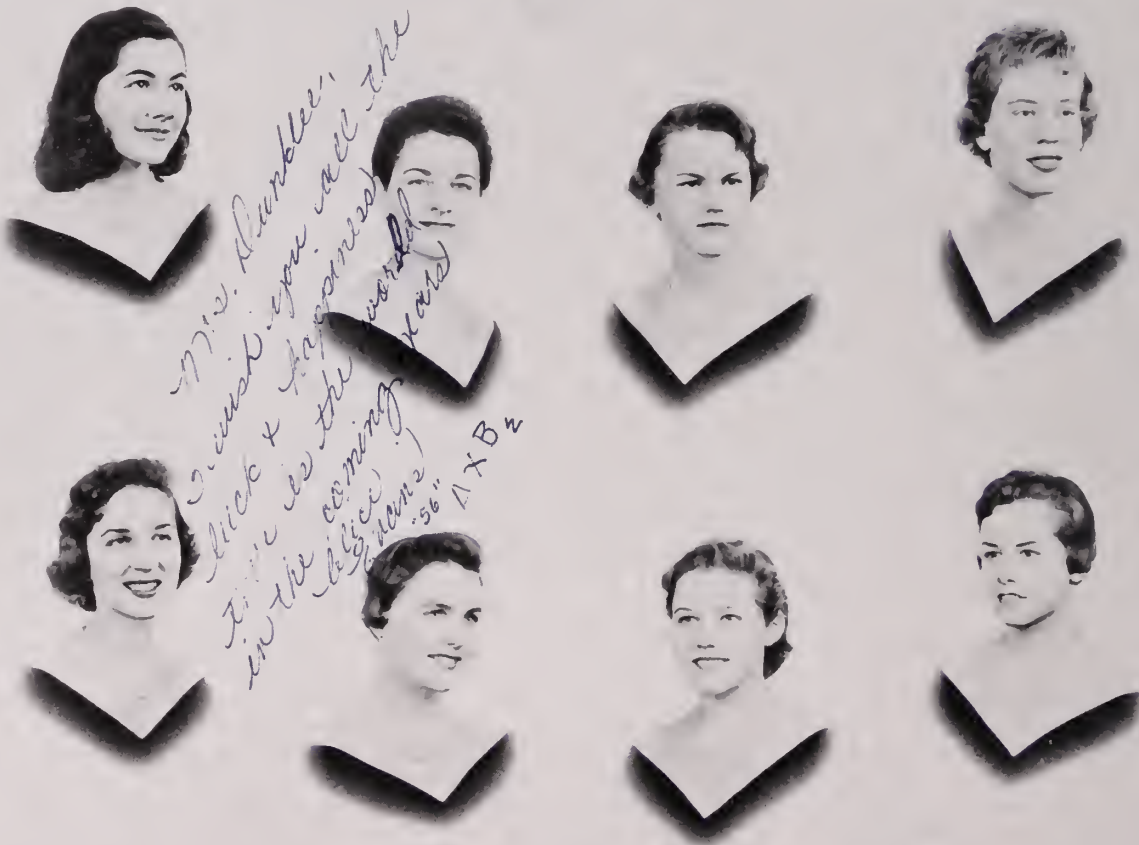 Mrs. Dunklee,
I wish you all the
luck & happiness
there is the world
in the coming years
Alice
Evans
"56" ΛXBε